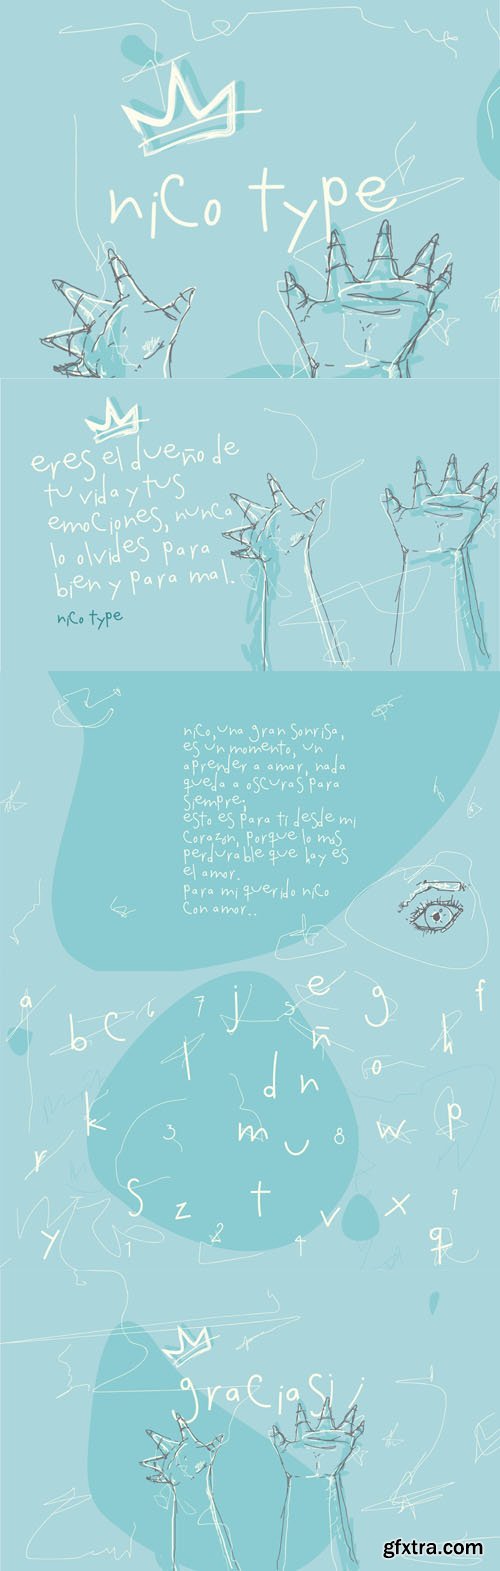 nico type
eres el dueño de
tu vida y tus
emociones, nunca
lo olvides para
bien y para mal.
nico type
nico, una gran sonrisa,
es un momento, un
aprender a amar, nada
queda a oscuras para
siempre;
esto es para ti desde mi
corazon, porque lo mas
perdurable que hay es
el amor.
para mi querido nico
con amor..
a b c 6 7 j 5 e g f
l ñ h
d n o
k 3 m u 8 w p
r
s z t v x 9
y 1 2 4 q
gracias¡¡
gfxtra.com